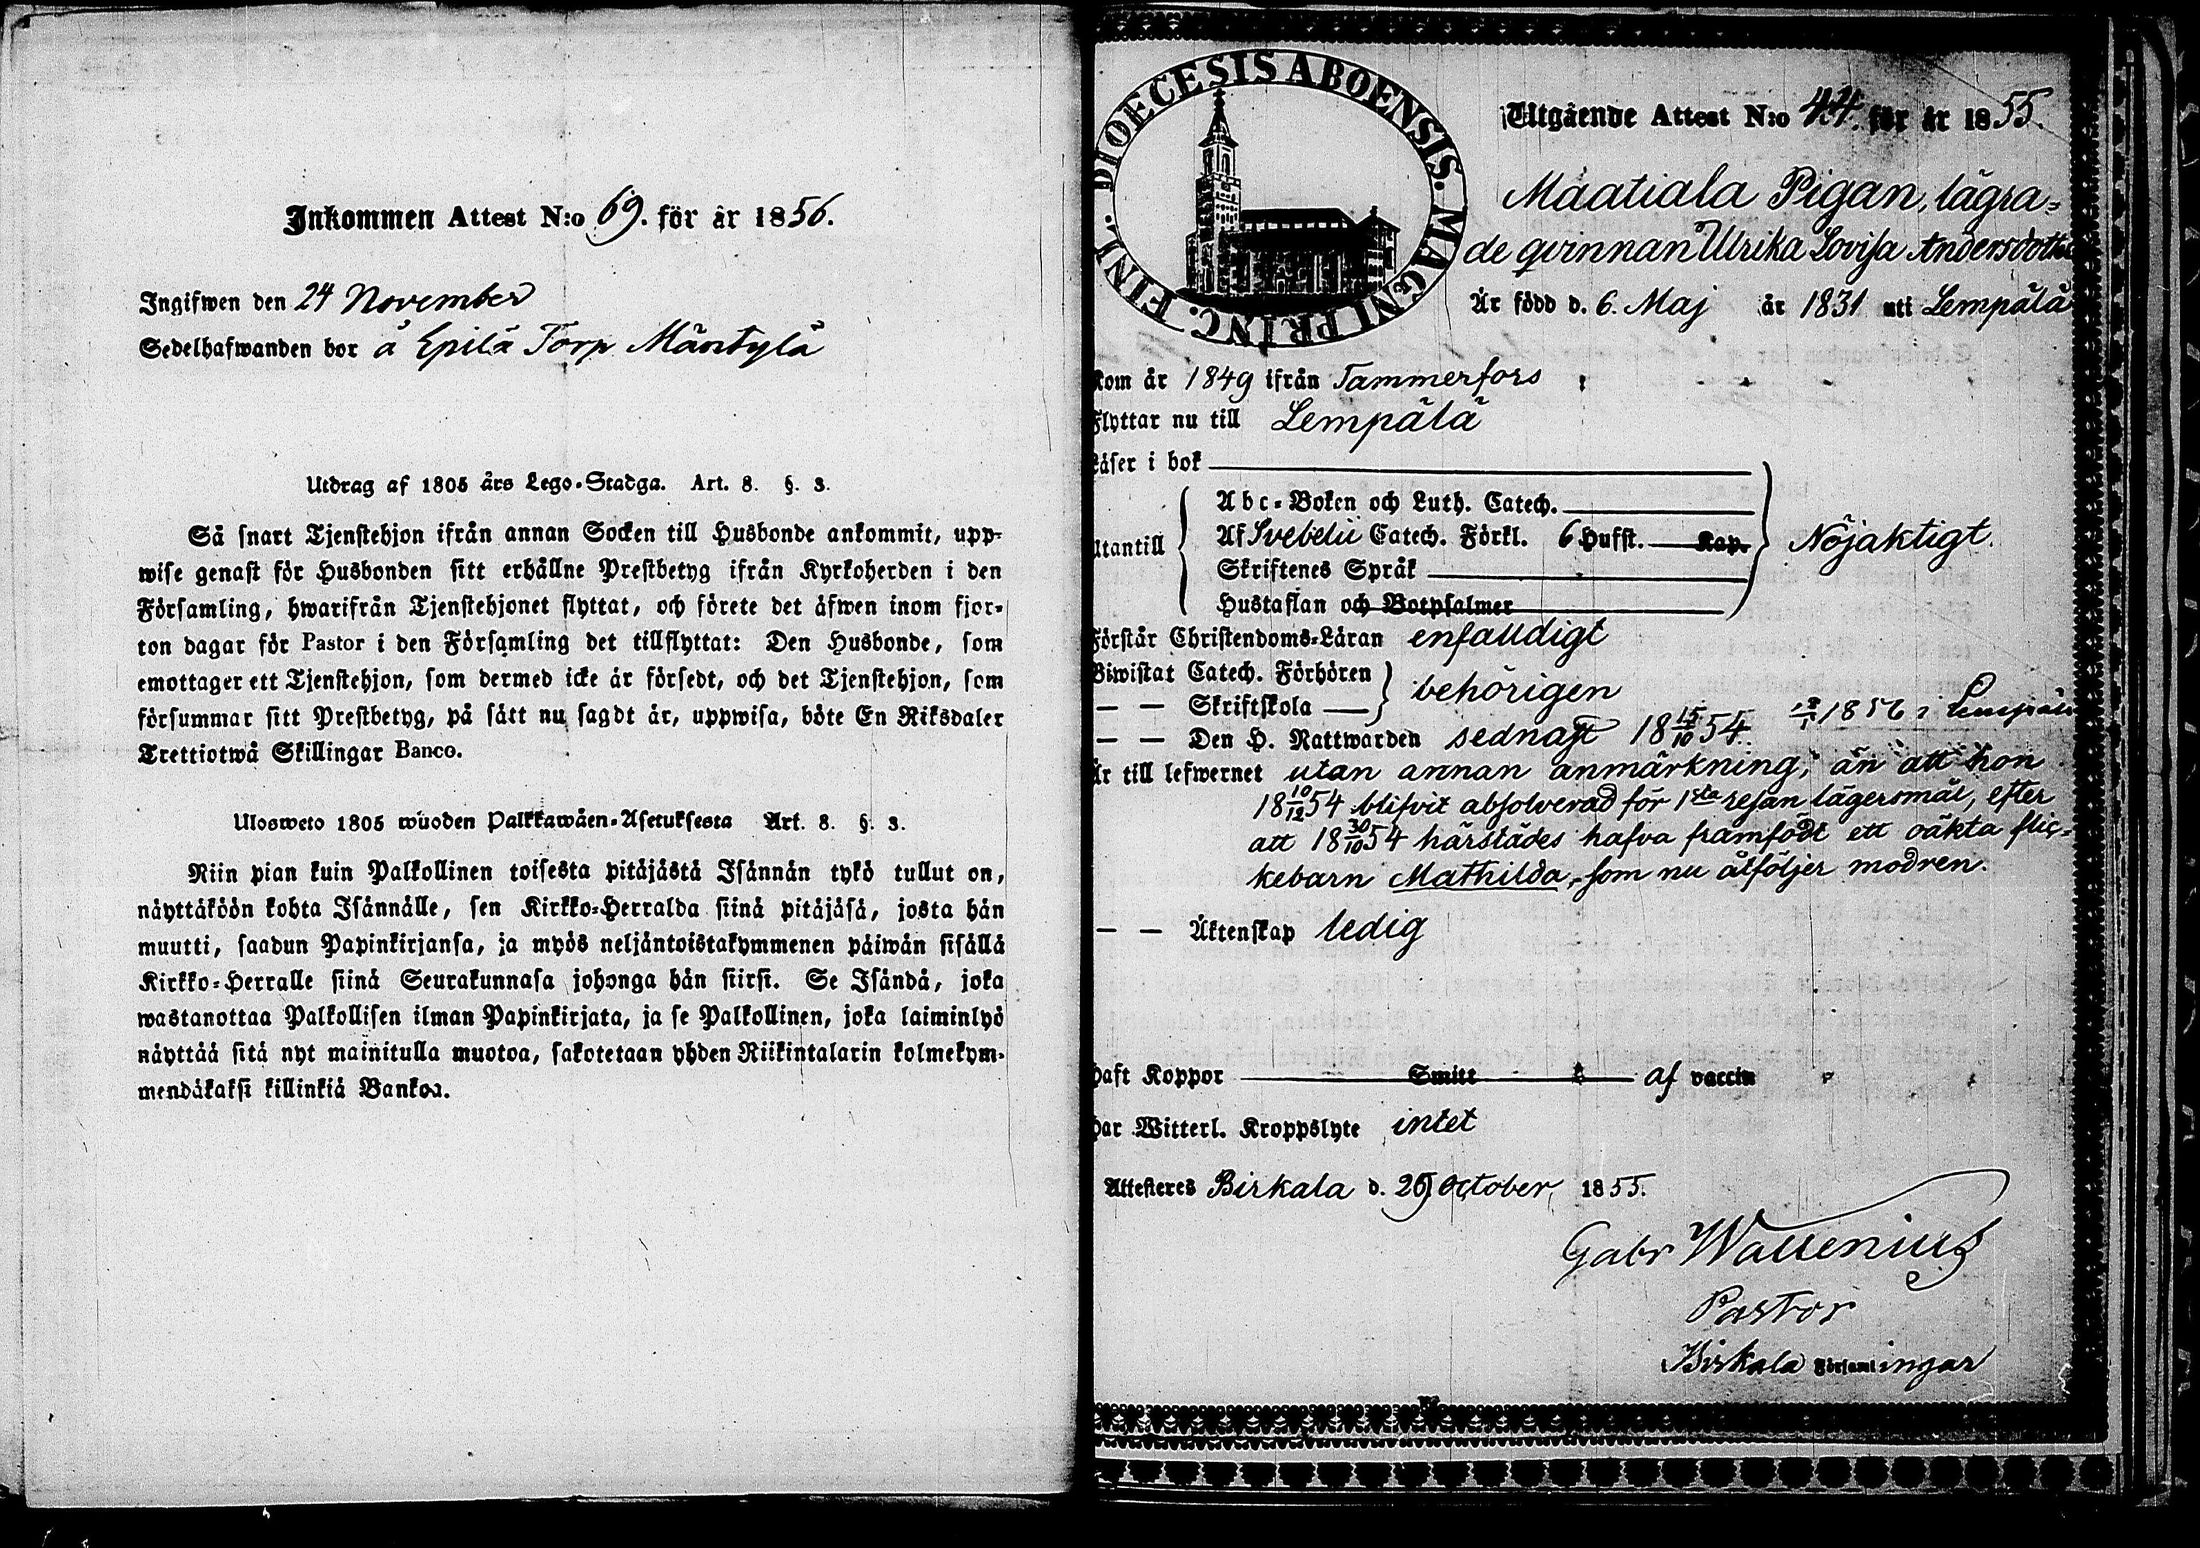 Inkommen Attest N:o 69. för år 1856.
Ingifwen den 24 November
Sedelhafwanden bor å Epilä Torp Mäntylä
Utdrag af 1805 års Lego-Stadga. Art. 8. §. 3.
Så snart Tjenstehjon ifrån annan Socken till Husbonde ankommit, upp-
wise genast för Husbonden sitt erhållne Prestbetyg ifrån Kyrkoherden i den
Församling, hwarifrån Tjenstehjonet flyttat, och förete det äfwen inom fjor-
ton dagar för Pastor i den Församling det tillflyttat: Den Husbonde, som
emottager ett Tjenstehjon, som dermed icke är försedt, och det Tjenstehjon, som
försummar sitt Prestbetyg, på sätt nu sagdt är, uppwisa, böte En Riksdaler
Trettiotwå Skillingar Banco.
Ulosweto 1805 wuoden Palkkawäen-Asetuksesta Art. 8. §. 3.
Niin pian kuin Palkollinen toisesta pitäjästä Isännän tykö tullut on,
näyttäköön kohta Isännälle, sen Kirkko-Herralda siinä pitäjäsä, josta hän
muutti, saadun Papinkirjansa, ja myös neljäntoistakymmenen päiwän sisällä
Kirkko-Herralle siinä Seurakunnasa johonga hän siirsi. Se Isändä, joka
wastanottaa Palkollisen ilman Papinkirjata, ja se Palkollinen, joka laiminlyö
näyttää sitä nyt mainitulla muotoa, sakotetaan yhden Riikintalarin kolmekym-
mendäkaksi killinkiä Bankoa.
FINL. DIOECESIS ABOENSIS. MAGNI PRINC.
Utgående Attest N:o 44. för år 1855.
Maatiala Pigan, lägra-
de qvinnan Ulrika Lovisa Andersdotter
Är född d. 6. Maj år 1831 uti Lempälä
Kom år 1849 ifrån Tammerfors
Flyttar nu till Lempälä
Läser i bok
Abc-Boken och Luth. Catech.
Utantill Af Svebelii Catech. Förkl. 6 Hufst. Kap. Nöjaktigt.
Skriftenes Språk
Hustaflan och Botpsalmer
Förstår Christendoms-Läran enfalldigt
Biwistat Catech. Förhören
— — Skriftskola — behörigen
— — Den H. Nattwarden sednast 18 15/10 54. 1856 i Lempälä
Är till lefwernet utan annan anmärkning, än att hon
18 10/12 54 blifvit absolverad för 1sta resan lägersmål, efter
att 18 30/10 54 härstädes hafva framfödt ett oäkta flic-
kebarn Mathilda, som nu åtföljer modren.
— — Äktenskap ledig
Haft Koppor Smitt af vaccin
Har Witterl. Kroppslyte intet
Attesteres Birkala d. 29 October, 1855.
Gabr Wallenius
Pastor
Birkala Församlingar